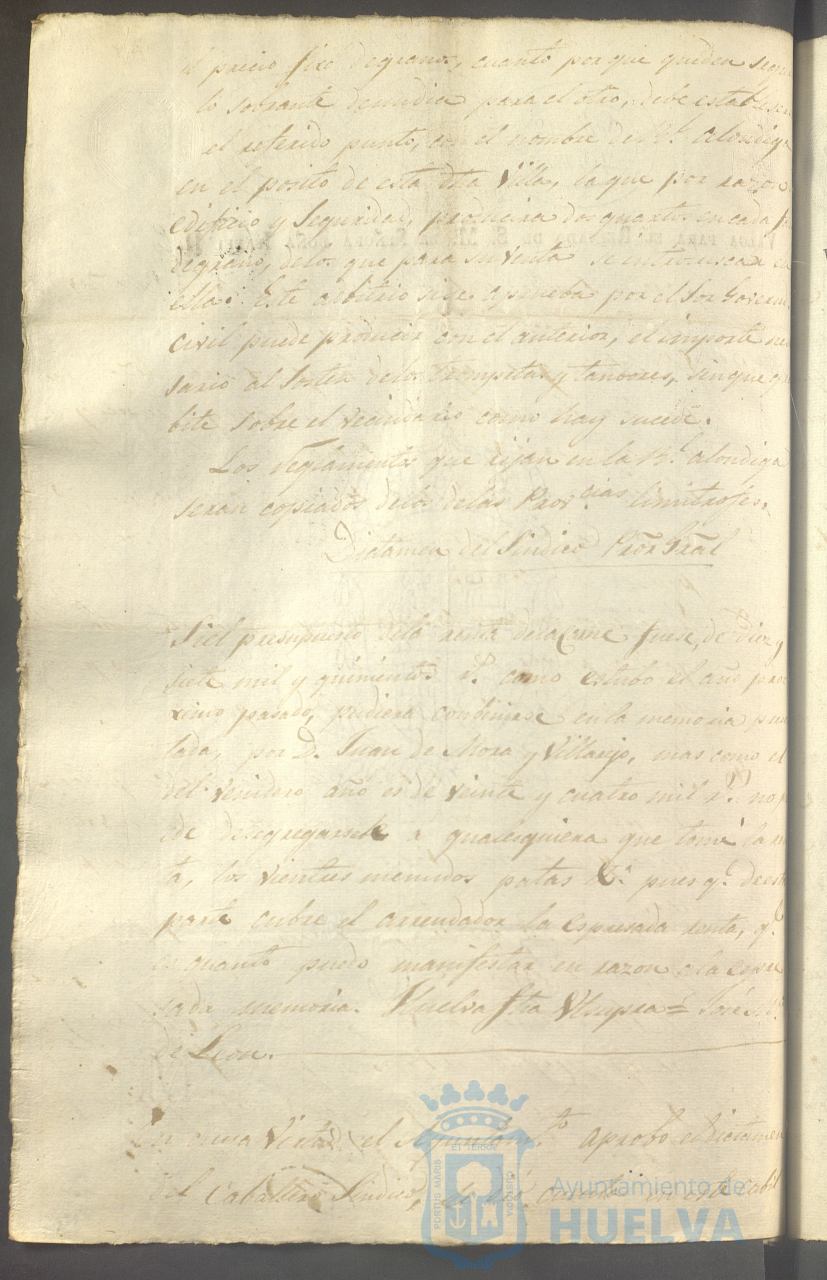 el precio fixo de granos, cuanto por que queden
lo sobrante de un dia para el otro, debe establecerse
el referido punto, con el nombre de Rl. alondiga
en el posito de esta dha Villa, la que por razon
edificio y Seguridad, producira dos quartos en cada
de grano, de los que para su venta se introduzcan en
ella. Este arbitrio si se aprueba por el Sor Govern
civil puede producir con el anterior, el importe ne
sario al sosten de los trompetas y tanbores, sin que
bite sobre el vecindario como hoy sucede.
Los reglamentos que rijan en la Rl. alondiga
seran copiados de los de las Provcias limitrofes.
Dictamen del Sindico Pror Gral
Si el presupuesto de la renta de la Carne fuese, de diez y
siete mil y quinientos rs. como estubo el año pro
ximo pasado, pudiera convinarse en la memoria
lada, por D. Juan de Mora y Villarejo, mas como el
del venidero año es de veinte y cuatro mil rs. no
ede desegregarsele a qualesquiera que tome la
ta, los vientres menudos patas &a. pues qe. de esta
parte cubre el arrendador la espresada renta, qe.
es quanto puedo manifestar en razon a la
sada memoria. Huelva fha Utsupra = José
de Leon.
En cuya Virtud, el Ayuntamto aprobó el dictamen
del Caballero Sindico,
EL TERROE
PORTUS MARIS
Ayuntamiento de
HUELVA